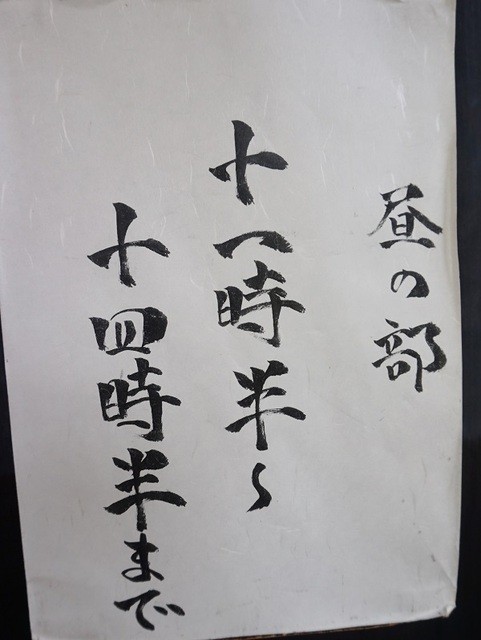 昼の部
十一時半～
十四時半まで